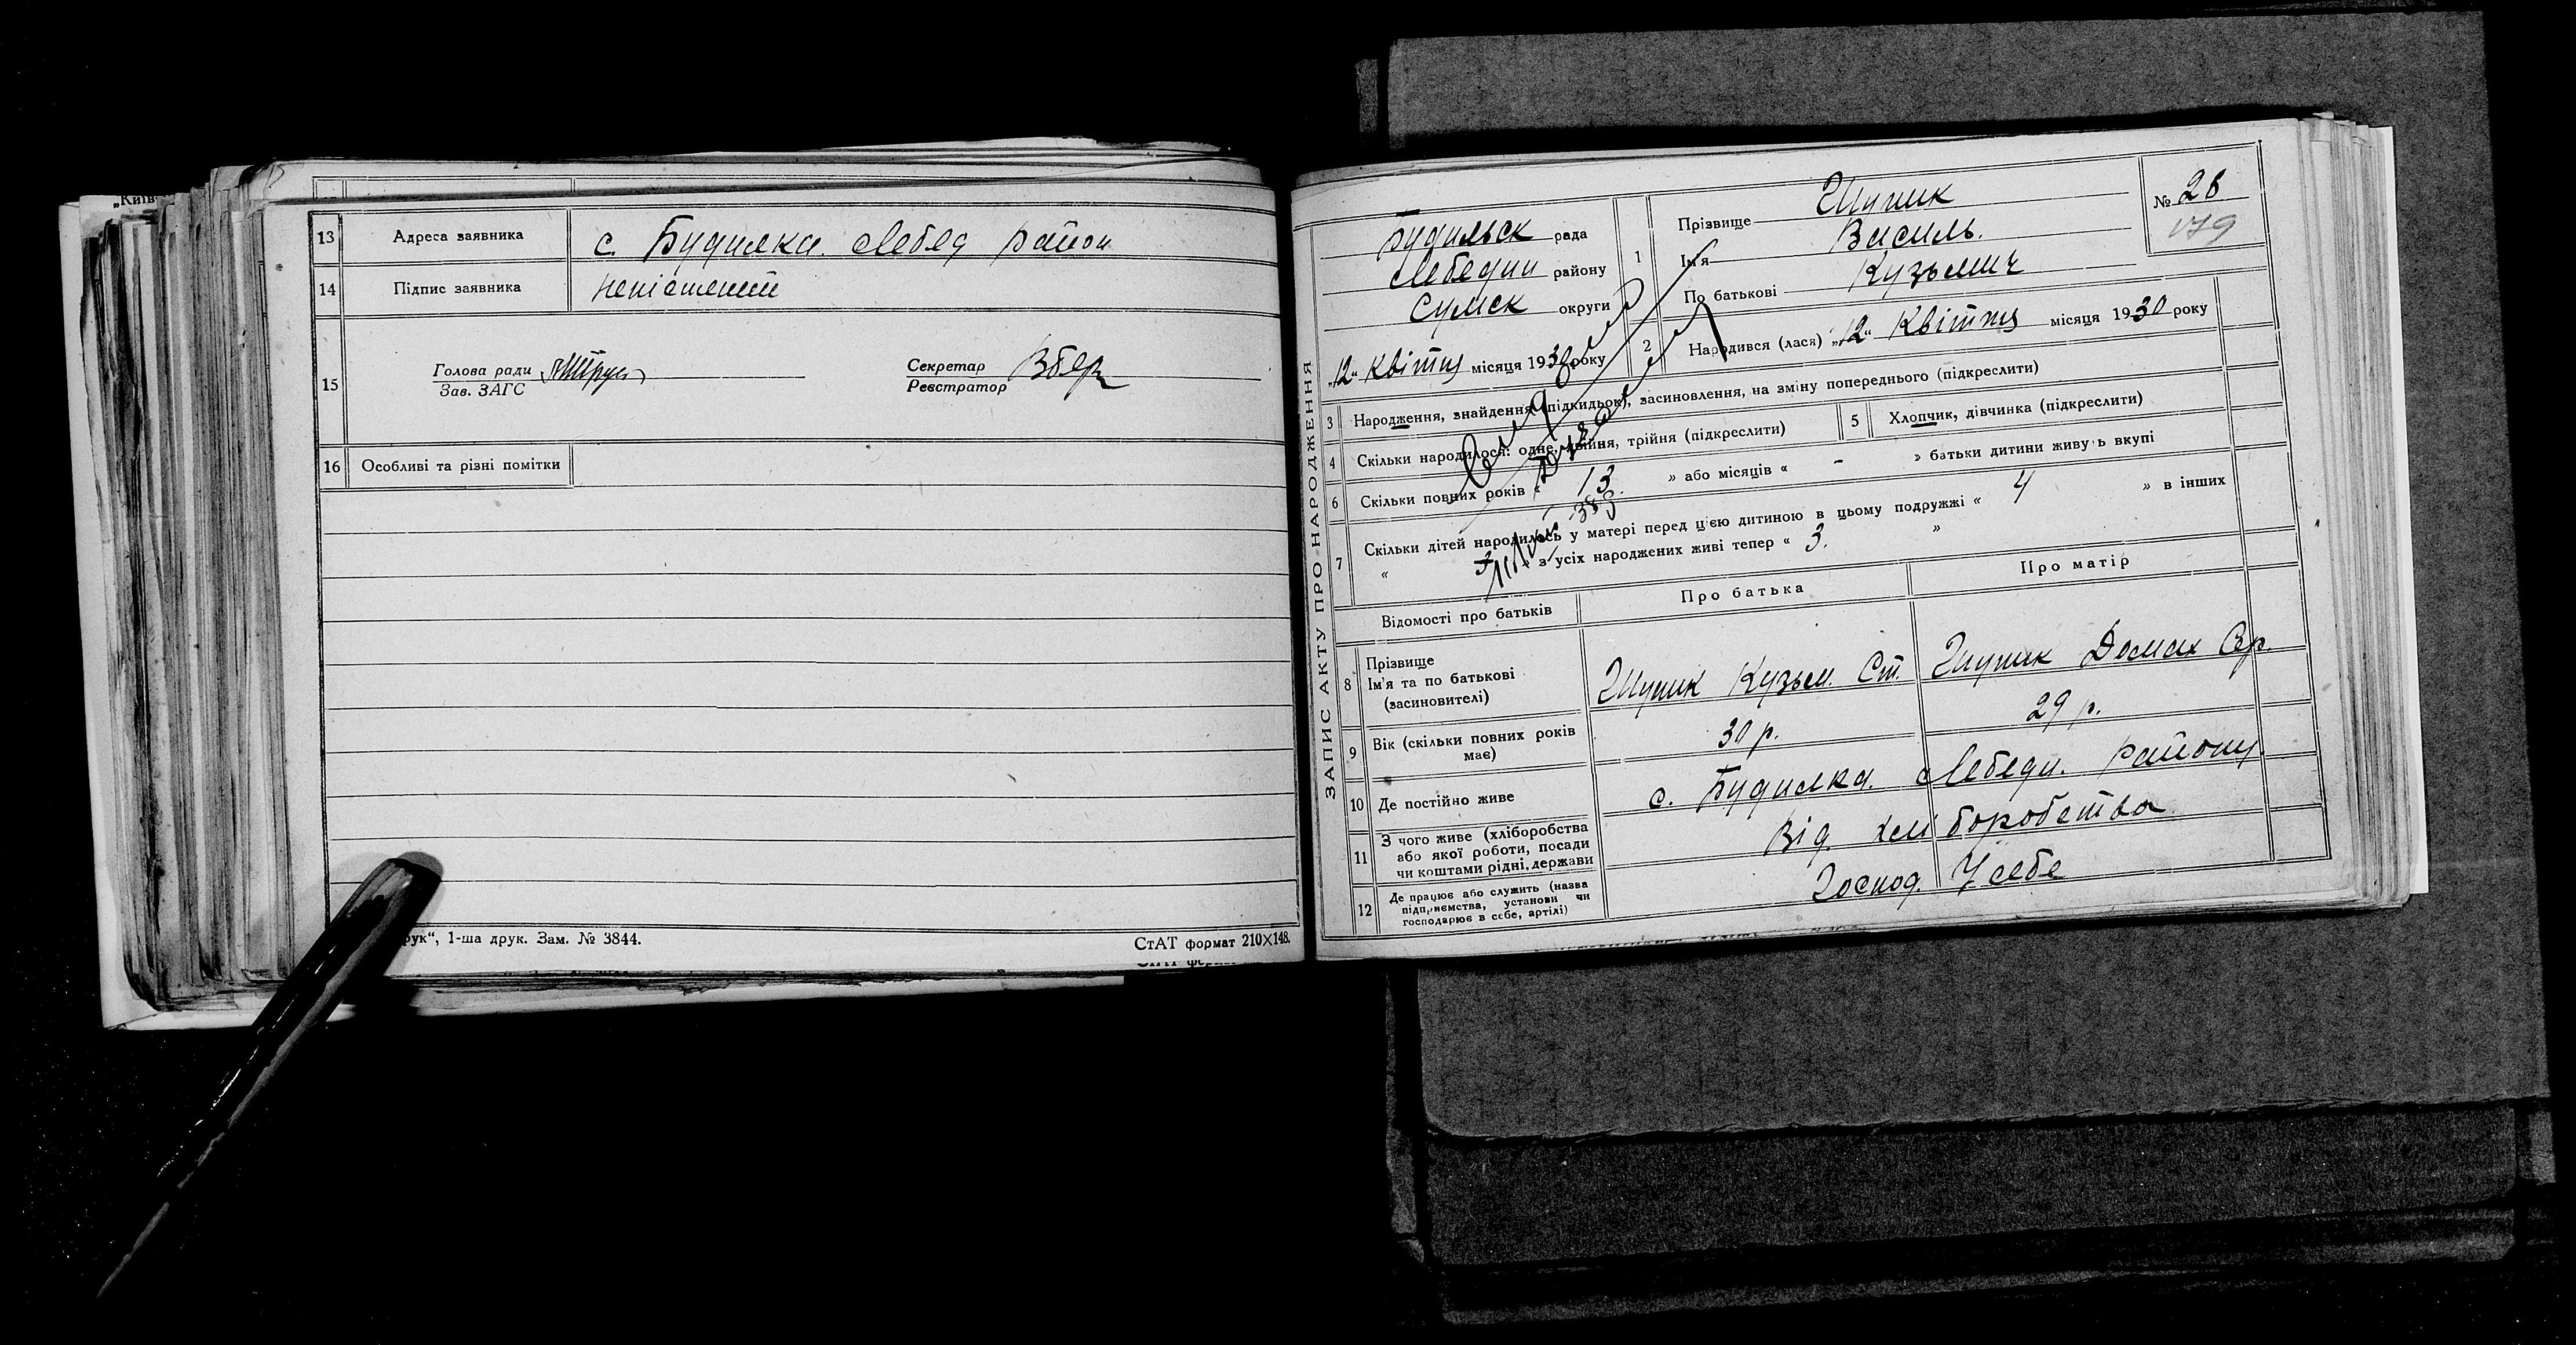 „Київ-
13 Адреса заявника с. Будилка. Лебед район
14 Підпис заявника неписьмений
15 Голова ради Секретар
Зав. ЗАГС Реєстратор
16 Особливі та різні помітки
рук“, 1-ша друк. Зам. № 3844.
СтАТ формат 210×148.
ЗАПИС АКТУ ПРО НАРОДЖЕННЯ
Будильск рада
Лебедин району
Сумск округи
„12“ Квітня місяця 1930 року
1 Прізвище Шупик
Ім'я Василь.
По батькові Кузьмич
№ 28
179
2 Народився (лася) „12“ Квітня місяця 1930 року
3 Народження, знайдення (підкидьок), засиновлення, на зміну попереднього (підкреслити)
4 Скільки народилося: одне, двійня, трійня (підкреслити)
5 Хлопчик, дівчинка (підкреслити)
6 Скільки повних років « 13. » або місяців « - » батьки дитини живуть вкупі
7 Скільки дітей народилось у матері перед цією дитиною в цьому подружжі « 4 » в інших
« » з усіх народжених живі тепер « 3. »
Відомості про батьків Про батька Про матір
8 Прізвище
Ім'я та по батькові
(засиновителі)
Шупик Кузьм. Ст. Шупик Домах
9 Вік (скільки повних років
має)
30 р. 29 р.
10 Де постійно живе с. Будилка. Лебедин. району.
11 З чого живе (хліборобства
або якої роботи, посади
чи коштами рідні, держави
Від. хліборобства
12 Де працює або служить (назва
підприємства, установи чи
господарює в себе, артілі)
Господ. У себе